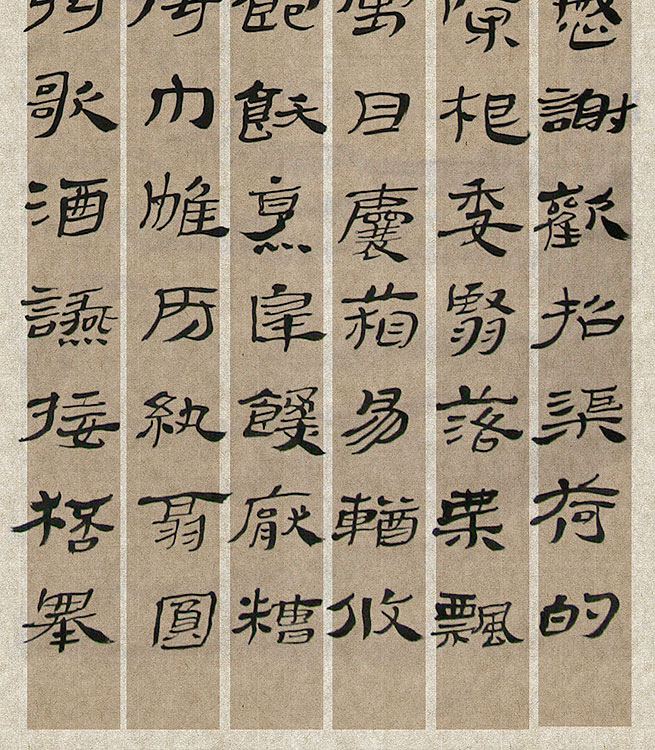 慼謝歡招渠荷的
陳根委翳落葉飄
寓目囊箱易輶攸
飽飫烹宰飢厭糟
侍巾帷房紈扇圓
弦歌酒讌接桮舉